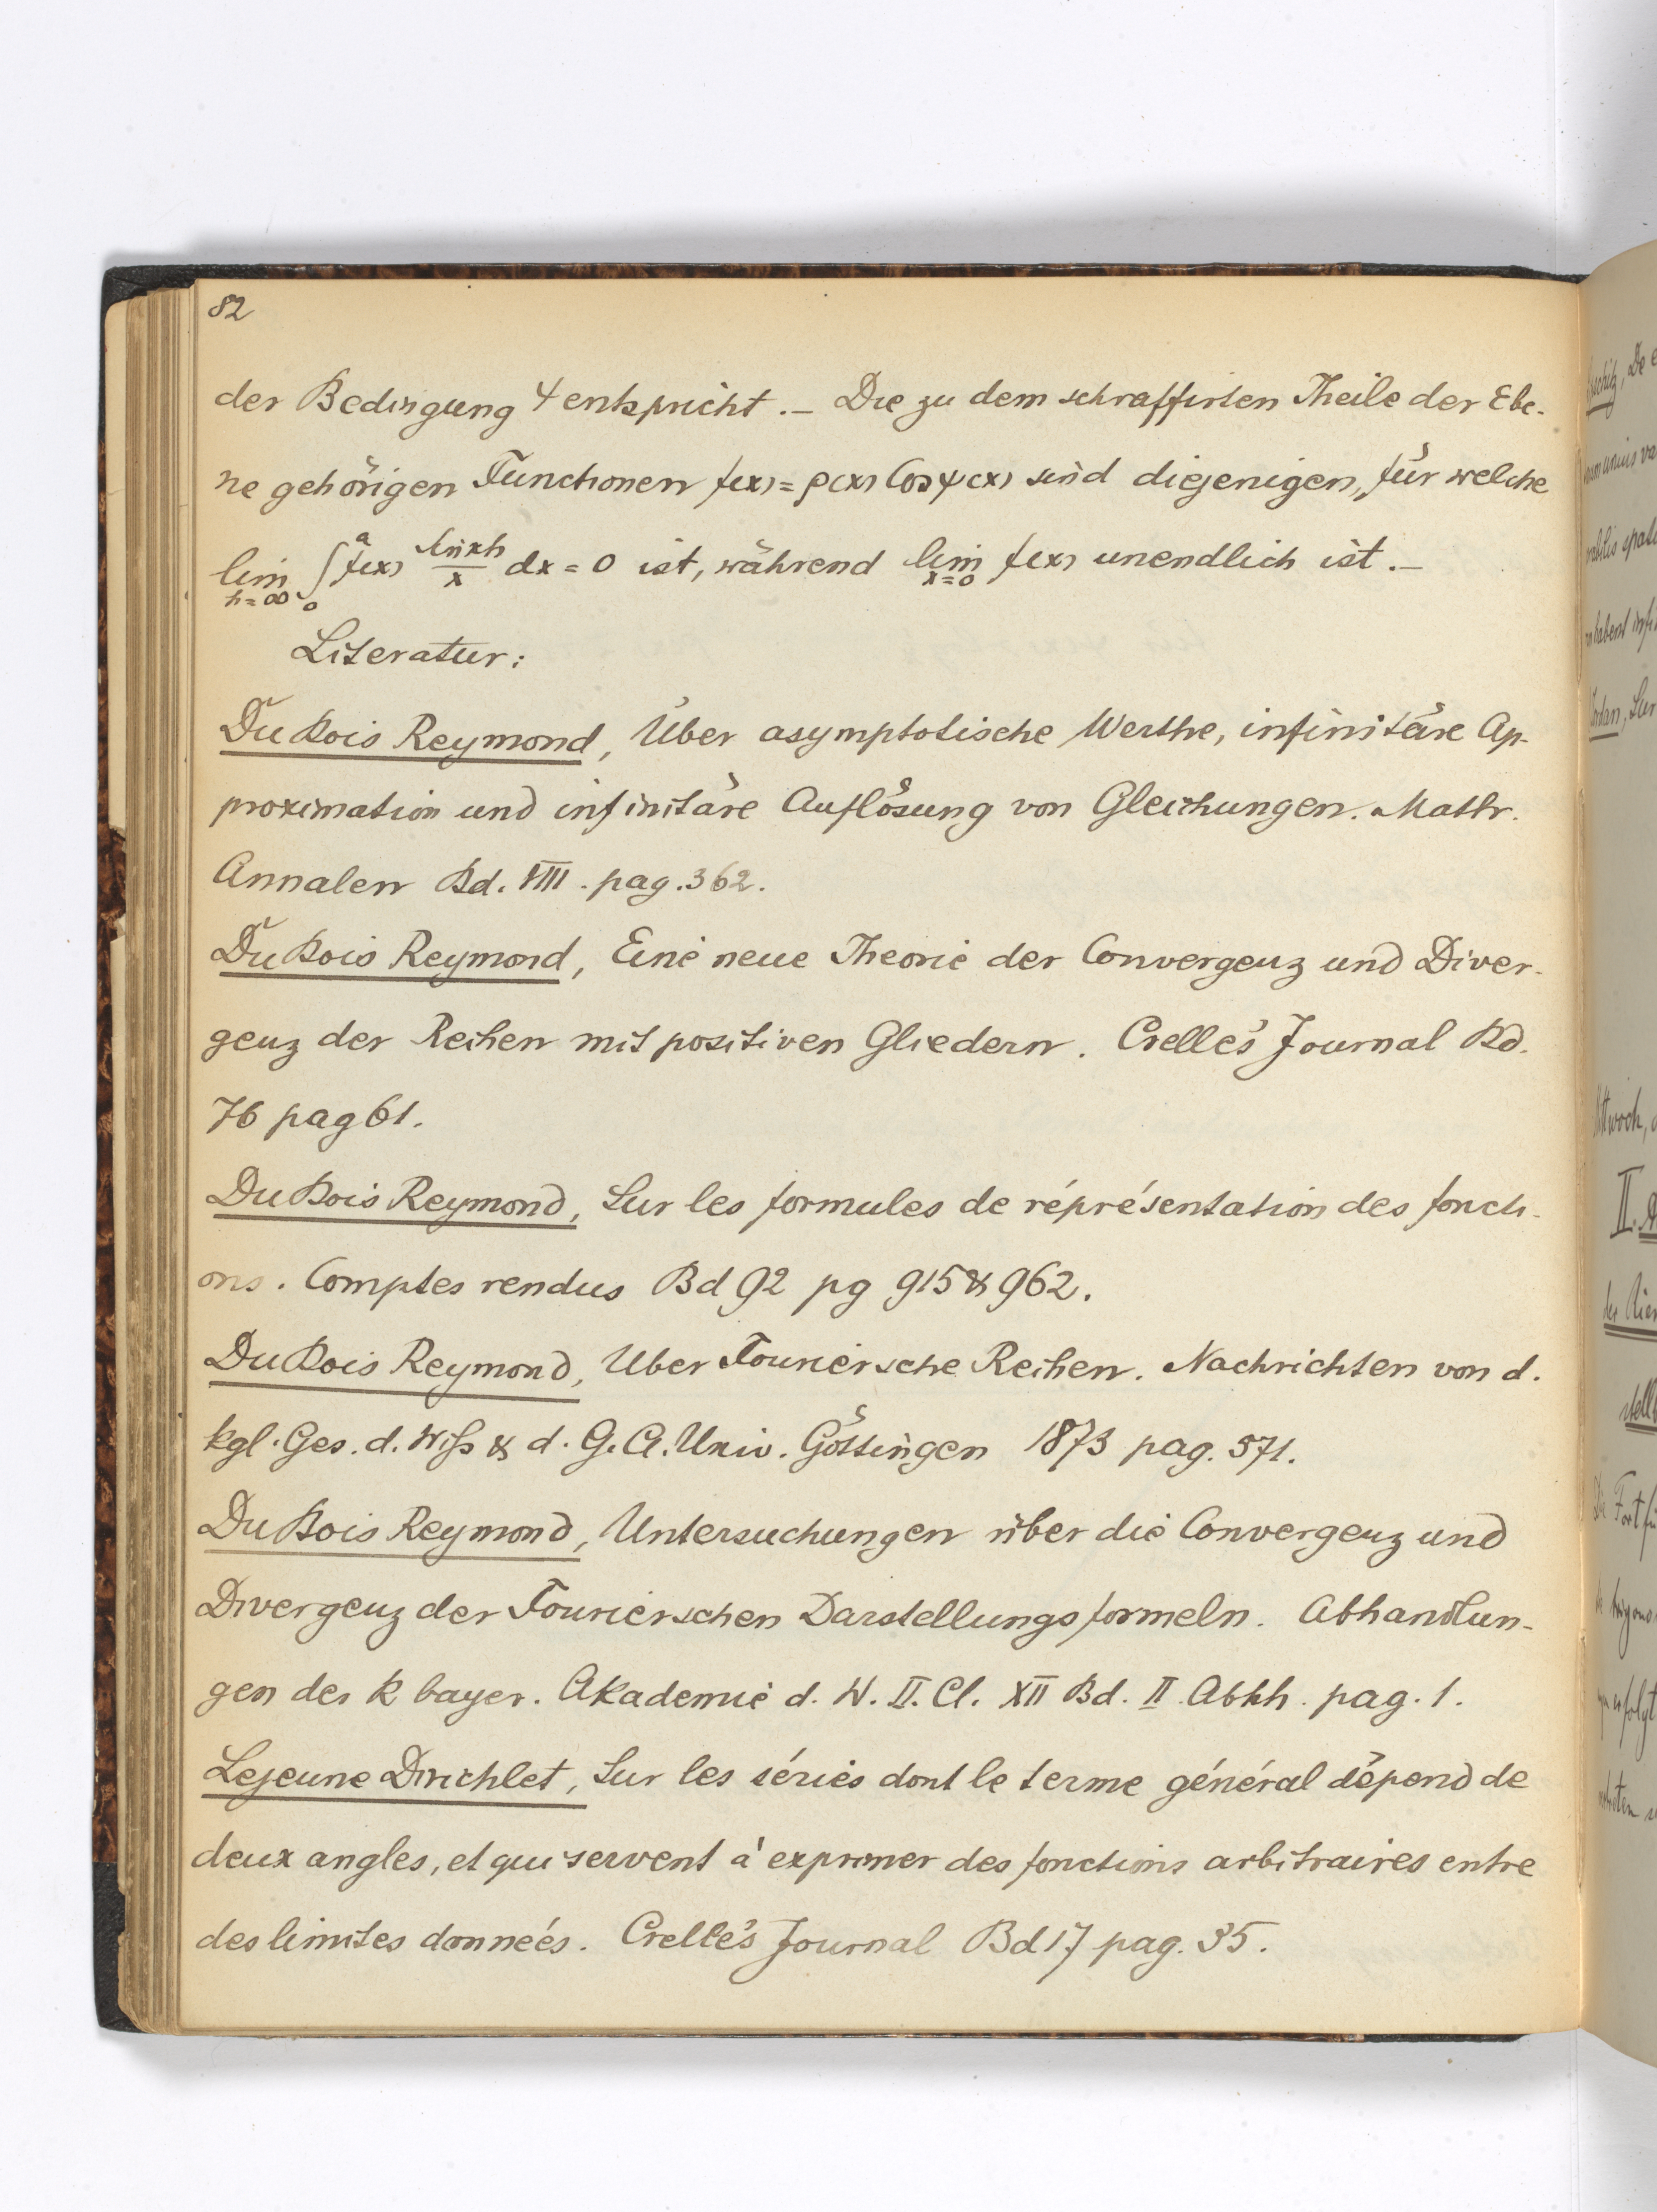 82
der Bedingung 4 entspricht. — Die zu dem schraffirten Theile der Ebe-
ne gehörigen Functionen f(x) = ρ(x) Cos ψ(x) sind diejenigen, für welche
lim h=∞ ∫₀ᵃ f(x) sin xh / x dx = 0 ist, während lim x=0 f(x) unendlich ist. —
Literatur:
Du Bois Reymond, Über asymptotische Werthe, infinitäre Ap-
proximation und infinitäre Auflösung von Gleichungen. Math.
Annalen Bd. VIII. pag. 362.
Du Bois Reymond, Eine neue Theorie der Convergenz und Diver-
genz der Reihen mit positiven Gliedern. Crelle's Journal Bd.
76 pag 61.
Du Bois Reymond, Sur les formules de réprésentation des foncti-
ons. Comptes rendus Bd 92 pg 915 & 962.
Du Bois Reymond, Uber Fouriersche Reihen. Nachrichten von d.
kgl. Ges. d. Wiss & d. G. A. Univ. Göttingen 1873 pag. 571.
Du Bois Reymond, Untersuchungen über die Convergenz und
Divergenz der Fourierschen Darstellungsformeln. Abhandlun-
gen der k bayer. Akademie d. W. II. Cl. XII Bd. II Abhh. pag. 1.
Lejeune Dirichlet, Sur les séries dont le terme général dépend de
deux angles, et qui servent à exprimer des fonctions arbitraires entre
des limites données. Crelle's Journal Bd 17 pag. 35.